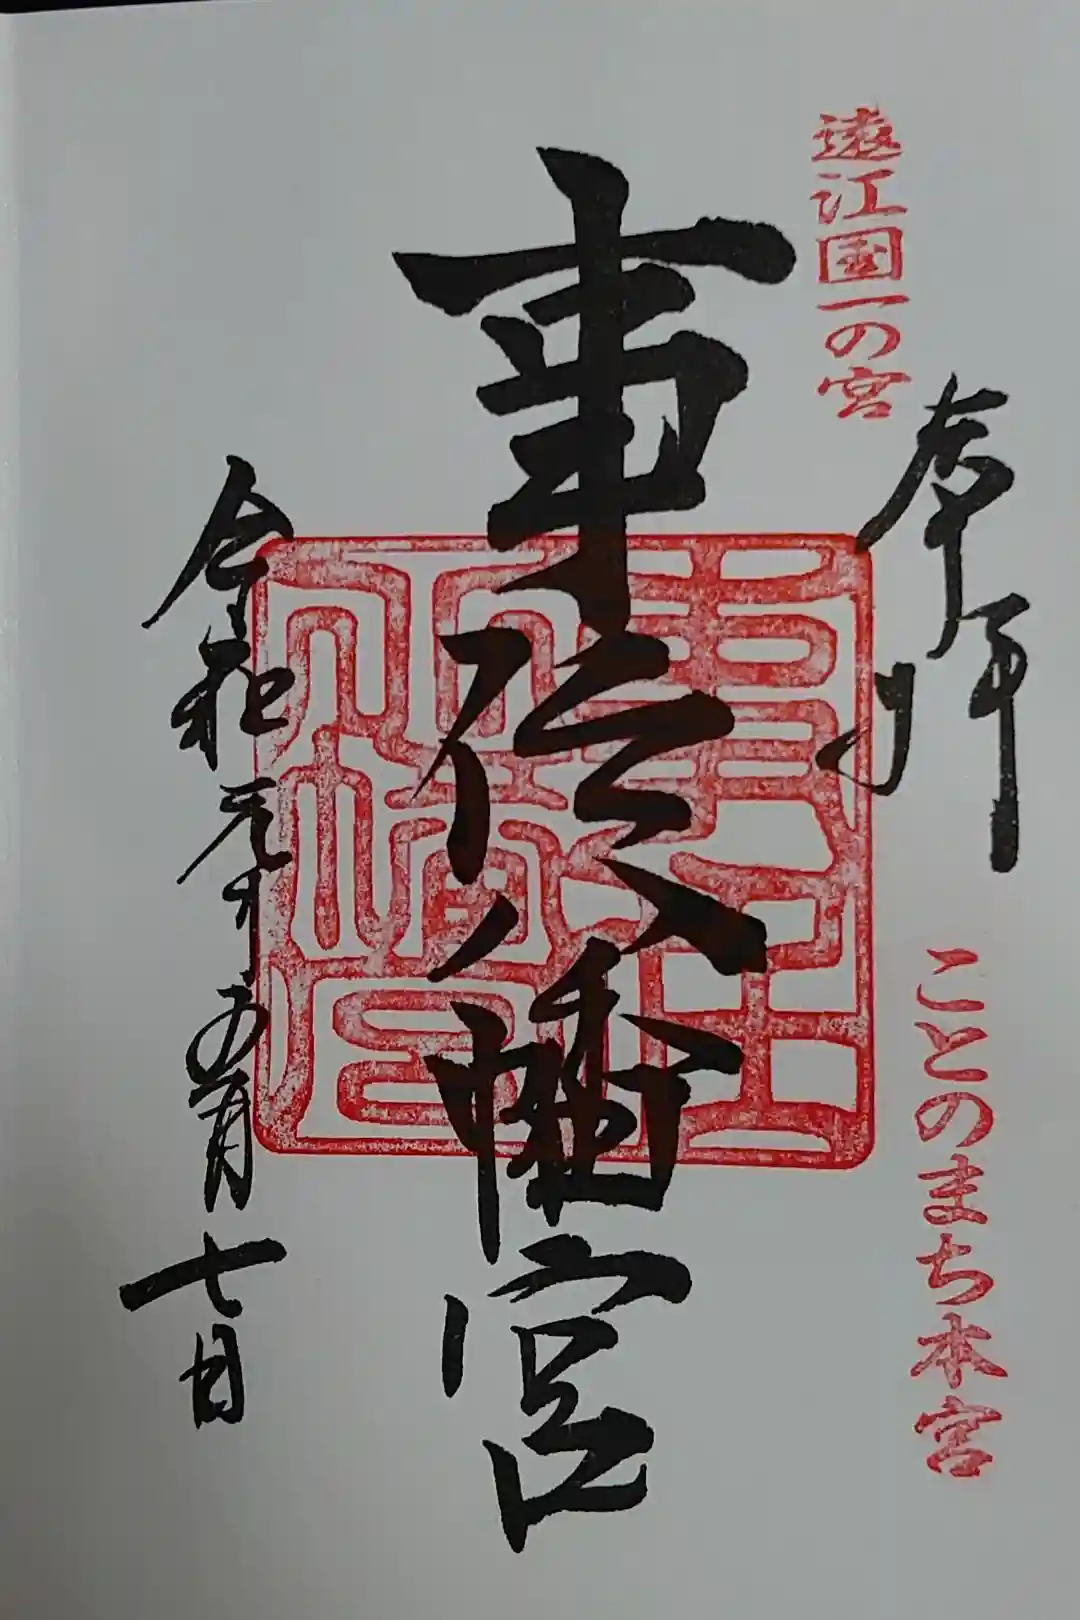 遠江国一の宮
奉拝
ことのまち本宮
事任八幡宮
事任八幡宮
令和元年五月七日